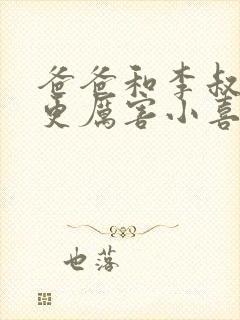 爸爸和李叔
更厉害小喜
也落